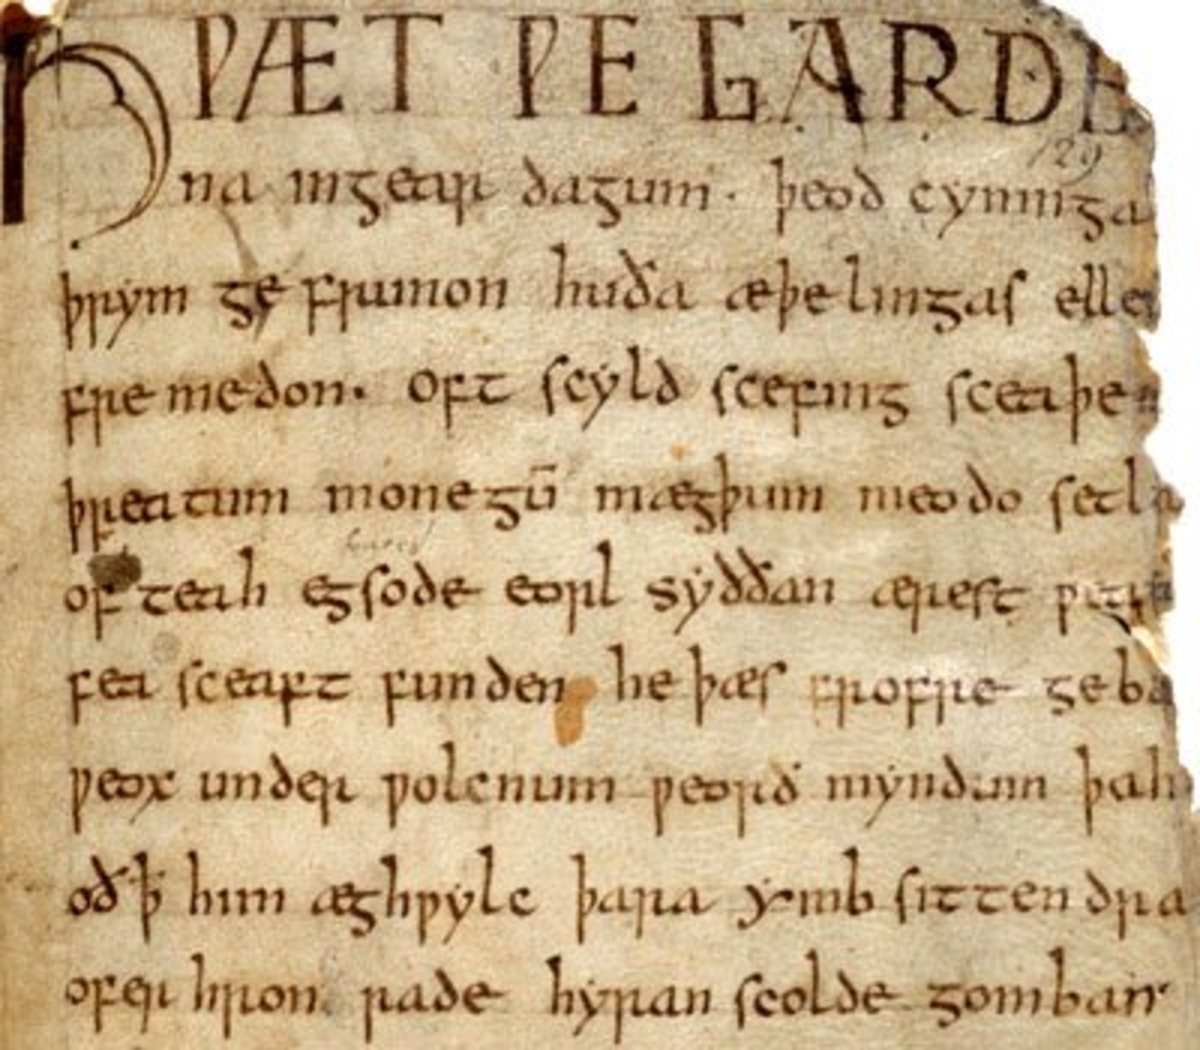 HǷÆT ǷE GARDE
129
na ingear dagum. þeod cyninga
þrym ge frunon huða æþelingas elle
fre medon. oft scyld scefing sceaþe
þreatum monegū mægþum meodo setla
of teah egsode eorl syððan ærest
fea sceaft funden he þæs frofre geba
ƿeox under ƿolcnum ƿeorð myndum þah
oð ꝥ him æghƿylc þara ymb sittendra
ofer hron rade hyran scolde gomban